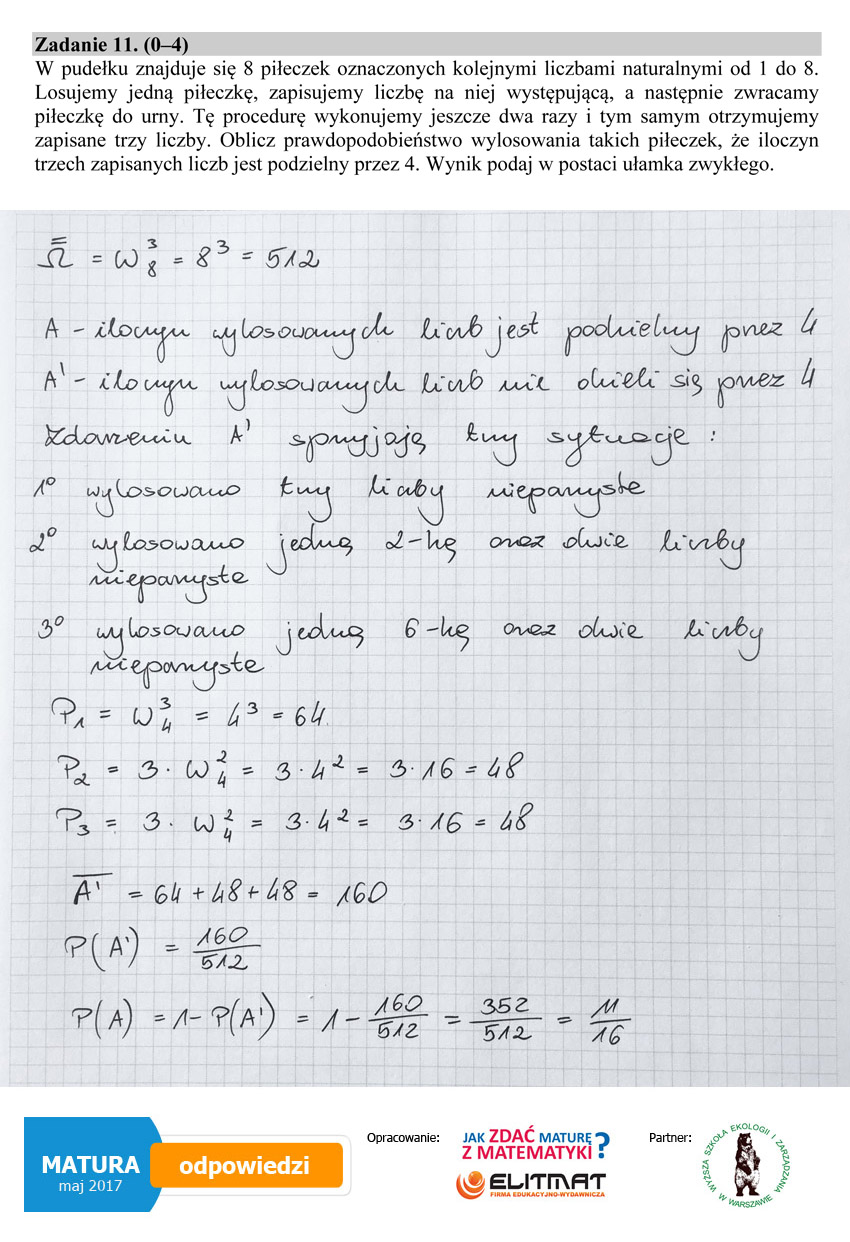 Zadanie 11. (0–4)
W pudełku znajduje się 8 piłeczek oznaczonych kolejnymi liczbami naturalnymi od 1 do 8.
Losujemy jedną piłeczkę, zapisujemy liczbę na niej występującą, a następnie zwracamy
piłeczkę do urny. Tę procedurę wykonujemy jeszcze dwa razy i tym samym otrzymujemy
zapisane trzy liczby. Oblicz prawdopodobieństwo wylosowania takich piłeczek, że iloczyn
trzech zapisanych liczb jest podzielny przez 4. Wynik podaj w postaci ułamka zwykłego.
Ω̿ = W₈³ = 8³ = 512
A - iloczyn wylosowanych liczb jest podzielny przez 4
A' - iloczyn wylosowanych liczb nie dzieli się przez 4
Zdarzeniu A' sprzyjają trzy sytuacje :
1° wylosowano trzy liczby nieparzyste
2° wylosowano jedną 2-kę oraz dwie liczby
nieparzyste
3° wylosowano jedną 6-kę oraz dwie liczby
nieparzyste
P₁ = W₄³ = 4³ = 64
P₂ = 3 · W₄² = 3 · 4² = 3 · 16 = 48
P₃ = 3 · W₄² = 3 · 4² = 3 · 16 = 48
A̅'̅ = 64 + 48 + 48 = 160
P(A') = 160/512
P(A) = 1 - P(A') = 1 - 160/512 = 352/512 = 11/16
MATURA
maj 2017
odpowiedzi
Opracowanie:
JAK ZDAĆ MATURĘ
Z MATEMATYKI?
ELITMAT
FIRMA EDUKACYJNO-WYDAWNICZA
Partner:
WYŻSZA SZKOŁA EKOLOGII I ZARZĄDZANIA
W WARSZAWIE